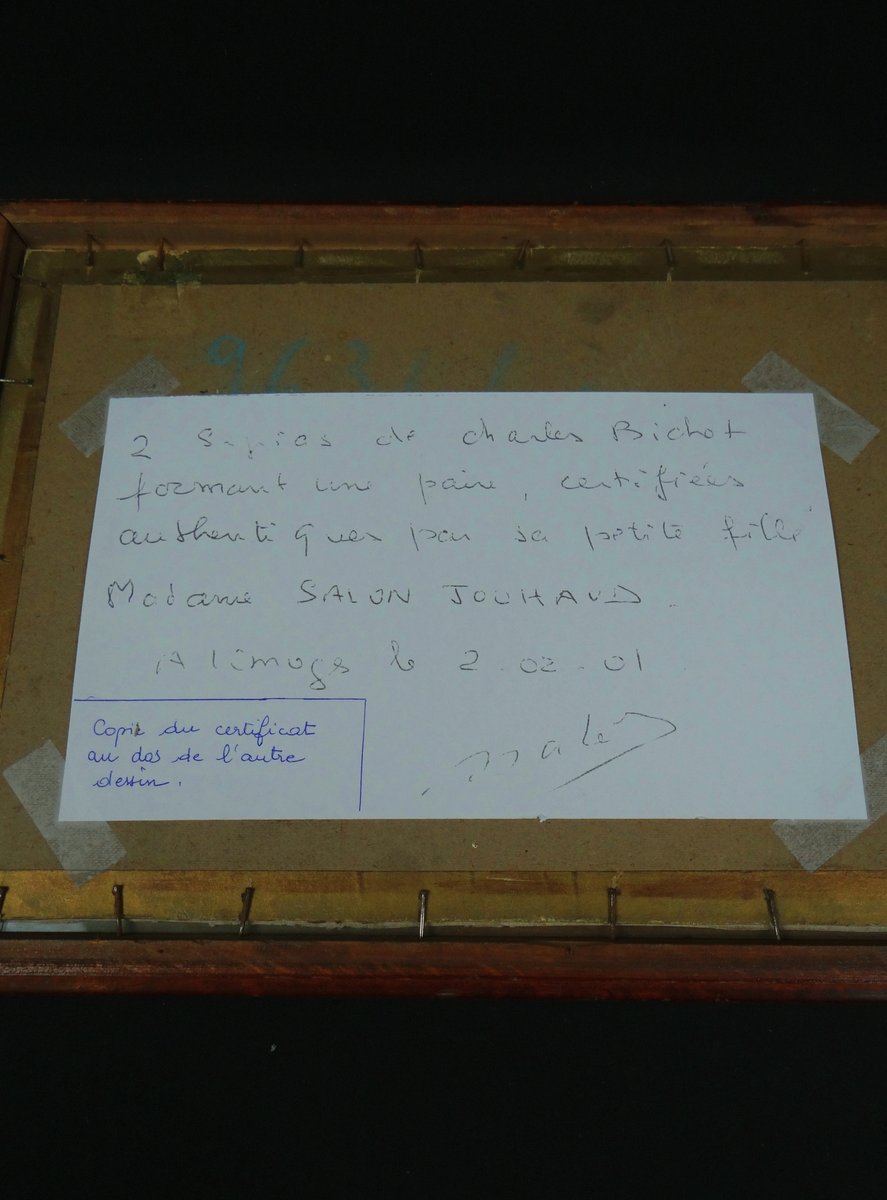 963
2 Sepias de charles Bichot
formant une paire, certifiées
authentiques par sa petite fille
Madame SALON JOUHAUD.
A limoges le 2.02.01
Copie du certificat
au dos de l'autre
dessin.